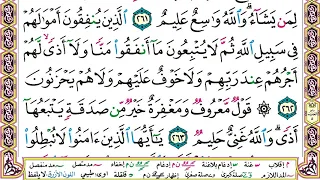 لِمَن يَشَآءُ ۗ وَٱللَّهُ وَٰسِعٌ عَلِيمٌ ٢٦١ ٱلَّذِينَ يُنفِقُونَ أَمْوَٰلَهُمْ
فِى سَبِيلِ ٱللَّهِ ثُمَّ لَا يُتْبِعُونَ مَآ أَنفَقُوا۟ مَنًّا وَلَآ أَذًى ۙ لَّهُمْ
أَجْرُهُمْ عِندَ رَبِّهِمْ وَلَا خَوْفٌ عَلَيْهِمْ وَلَا هُمْ يَحْزَنُونَ
٢٦٢ قَوْلٌ مَّعْرُوفٌ وَمَغْفِرَةٌ خَيْرٌ مِّن صَدَقَةٍ يَتْبَعُهَآ
أَذًى ۗ وَٱللَّهُ غَنِىٌّ حَلِيمٌ ٢٦٣ يَٰٓأَيُّهَا ٱلَّذِينَ ءَامَنُوا۟ لَا تُبْطِلُوا۟